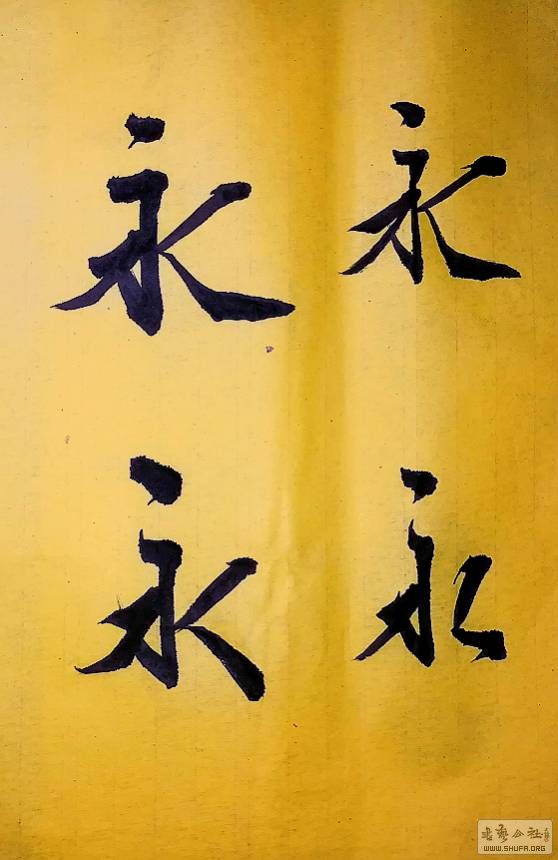 永 永
永 永
书艺公社
WWW.SHUFA.ORG